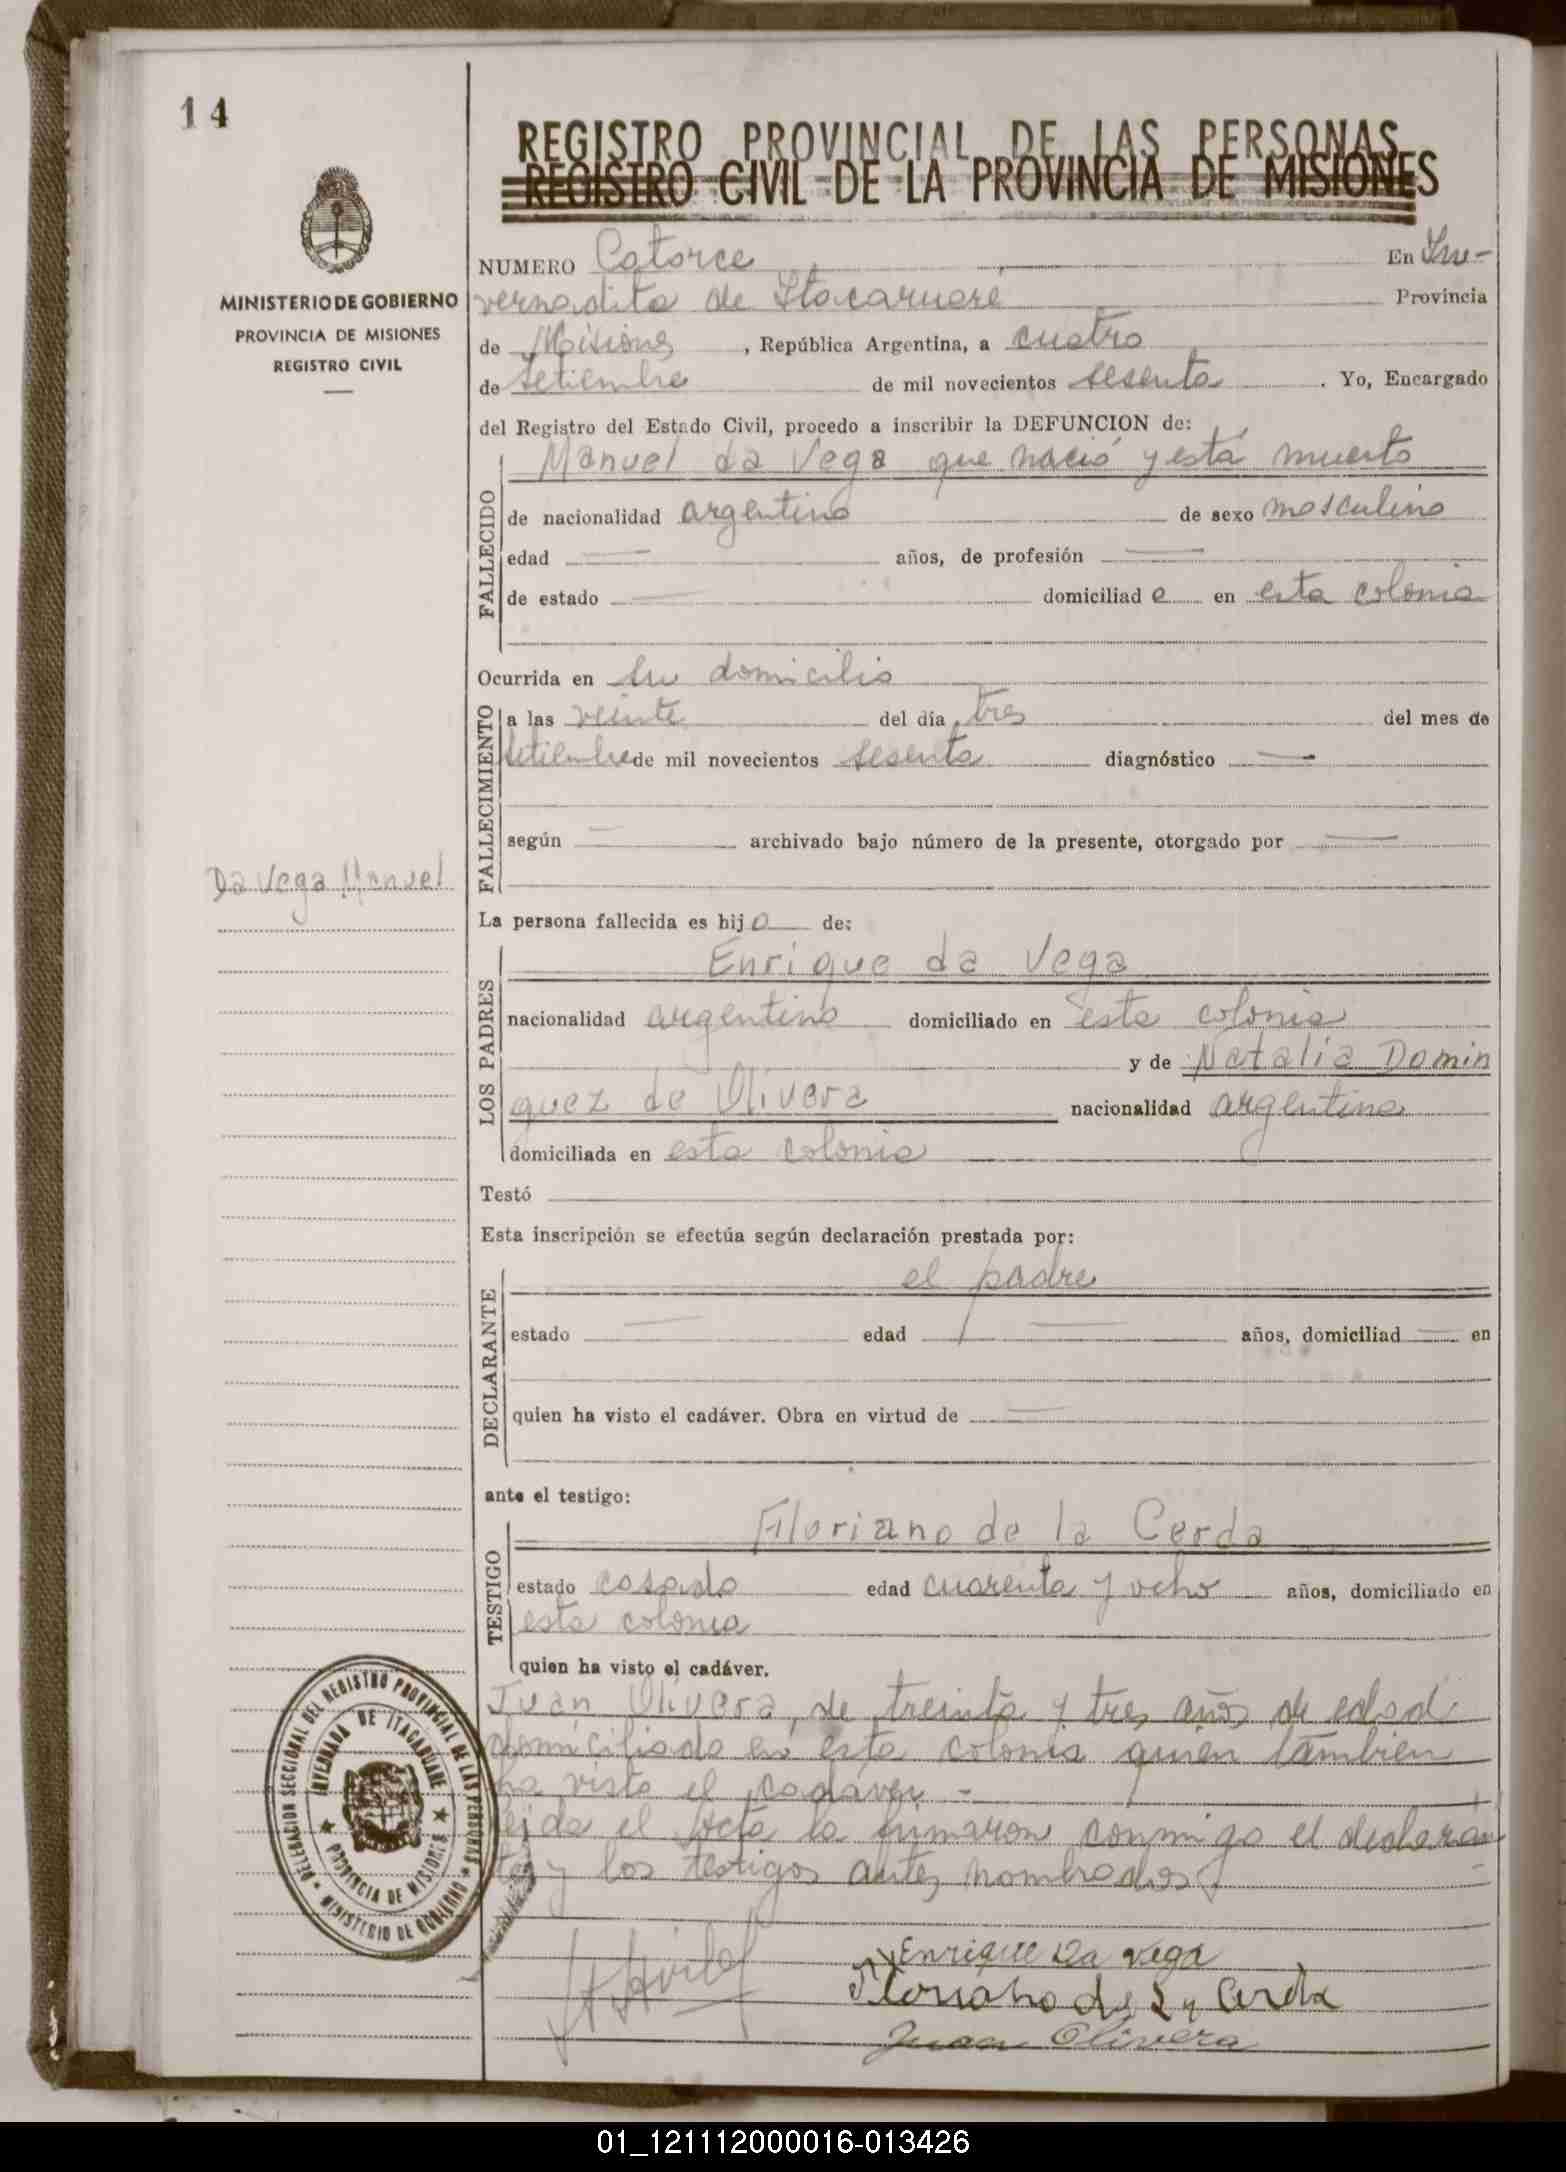 14
REGISTRO PROVINCIAL DE LAS PERSONAS
REGISTRO CIVIL DE LA PROVINCIA DE MISIONES
MINISTERIO DE GOBIERNO
PROVINCIA DE MISIONES
REGISTRO CIVIL
NUMERO Catorce En Inve-
vernadita de Itacaruaré Provincia
de Misiones, República Argentina, a cuatro
de setiembre de mil novecientos sesenta. Yo, Encargado
del Registro del Estado Civil, procedo a inscribir la DEFUNCION de:
Manuel da Vega que nació y está muerto
FALLECIDO
de nacionalidad argentino de sexo masculino
edad — años, de profesión —
de estado — domiciliad o en esta colonia
Ocurrida en su domicilio
FALLECIMIENTO
a las veinte del día tres del mes de
setiembre de mil novecientos sesenta diagnóstico —
según — archivado bajo número de la presente, otorgado por —
Da Vega Manuel
La persona fallecida es hijo de:
LOS PADRES
Enrique da Vega
nacionalidad argentino domiciliado en esta colonia
y de Natalia Domin
guez de Olivera nacionalidad argentina
domiciliada en esta colonia
Testó
Esta inscripción se efectúa según declaración prestada por:
DECLARANTE
el padre
estado — edad — años, domiciliad — en
quien ha visto el cadáver. Obra en virtud de —
ante el testigo:
TESTIGO
Floriano de la Cerda
estado casado edad cuarenta y ocho años, domiciliado en
esta colonia
quien ha visto el cadáver.
Juan Olivera, de treinta y tres años de edad
domiciliado en esta colonia quien tambien
ha visto el cadáver -
leida el acta la firmaron conmigo el declaran
te y los testigos antes nombrados
DELEGACION SECCIONAL DEL REGISTRO PROVINCIAL DE LAS PERSONAS
MINISTERIO DE GOBIERNO
INVERNADA DE ITACARUARE
PROVINCIA DE MISIONES
Enrique Da Vega
Floriano de La Cerda
Juan Olivera
01_121112000016-013426